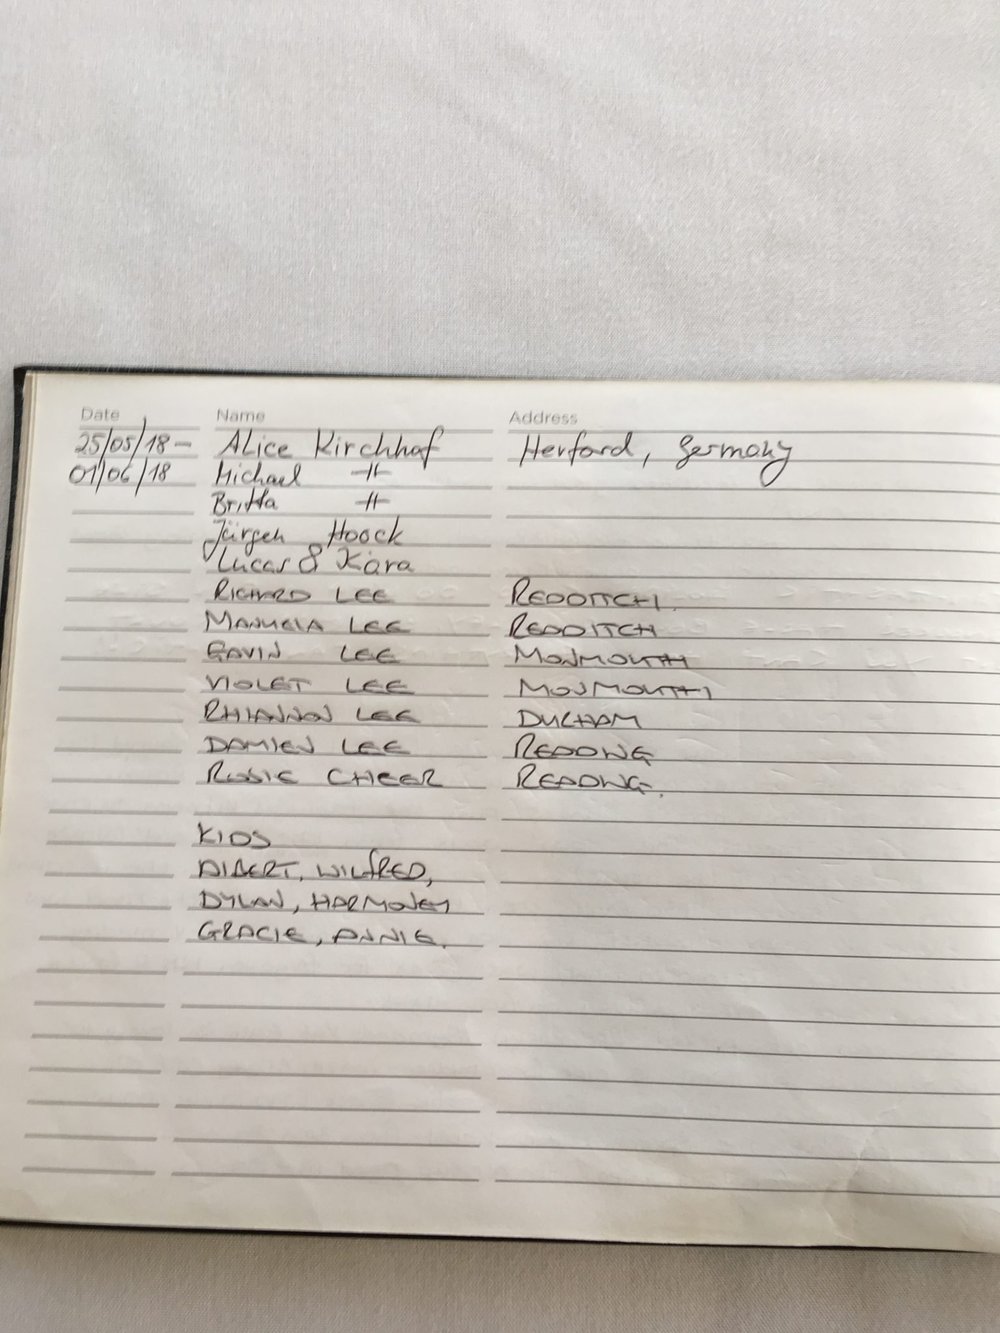 Date Name Address
25/05/18 - Alice Kirchhof Herford, Germany
01/06/18 Michael -"-
Britta -"-
Jürgen Hoock
Lucas & Kiara
RICHARD LEE REDDITCH.
MANUELA LEE REDDITCH
GAVIN LEE MONMOUTH
VIOLET LEE MONMOUTH
RHIANNON LEE DURHAM
DAMIEN LEE READING
ROSIE CHEER READING.
KIDS
ALBERT, WILFRED,
DYLAN, HARMONEY
GRACIE, ANNIE.